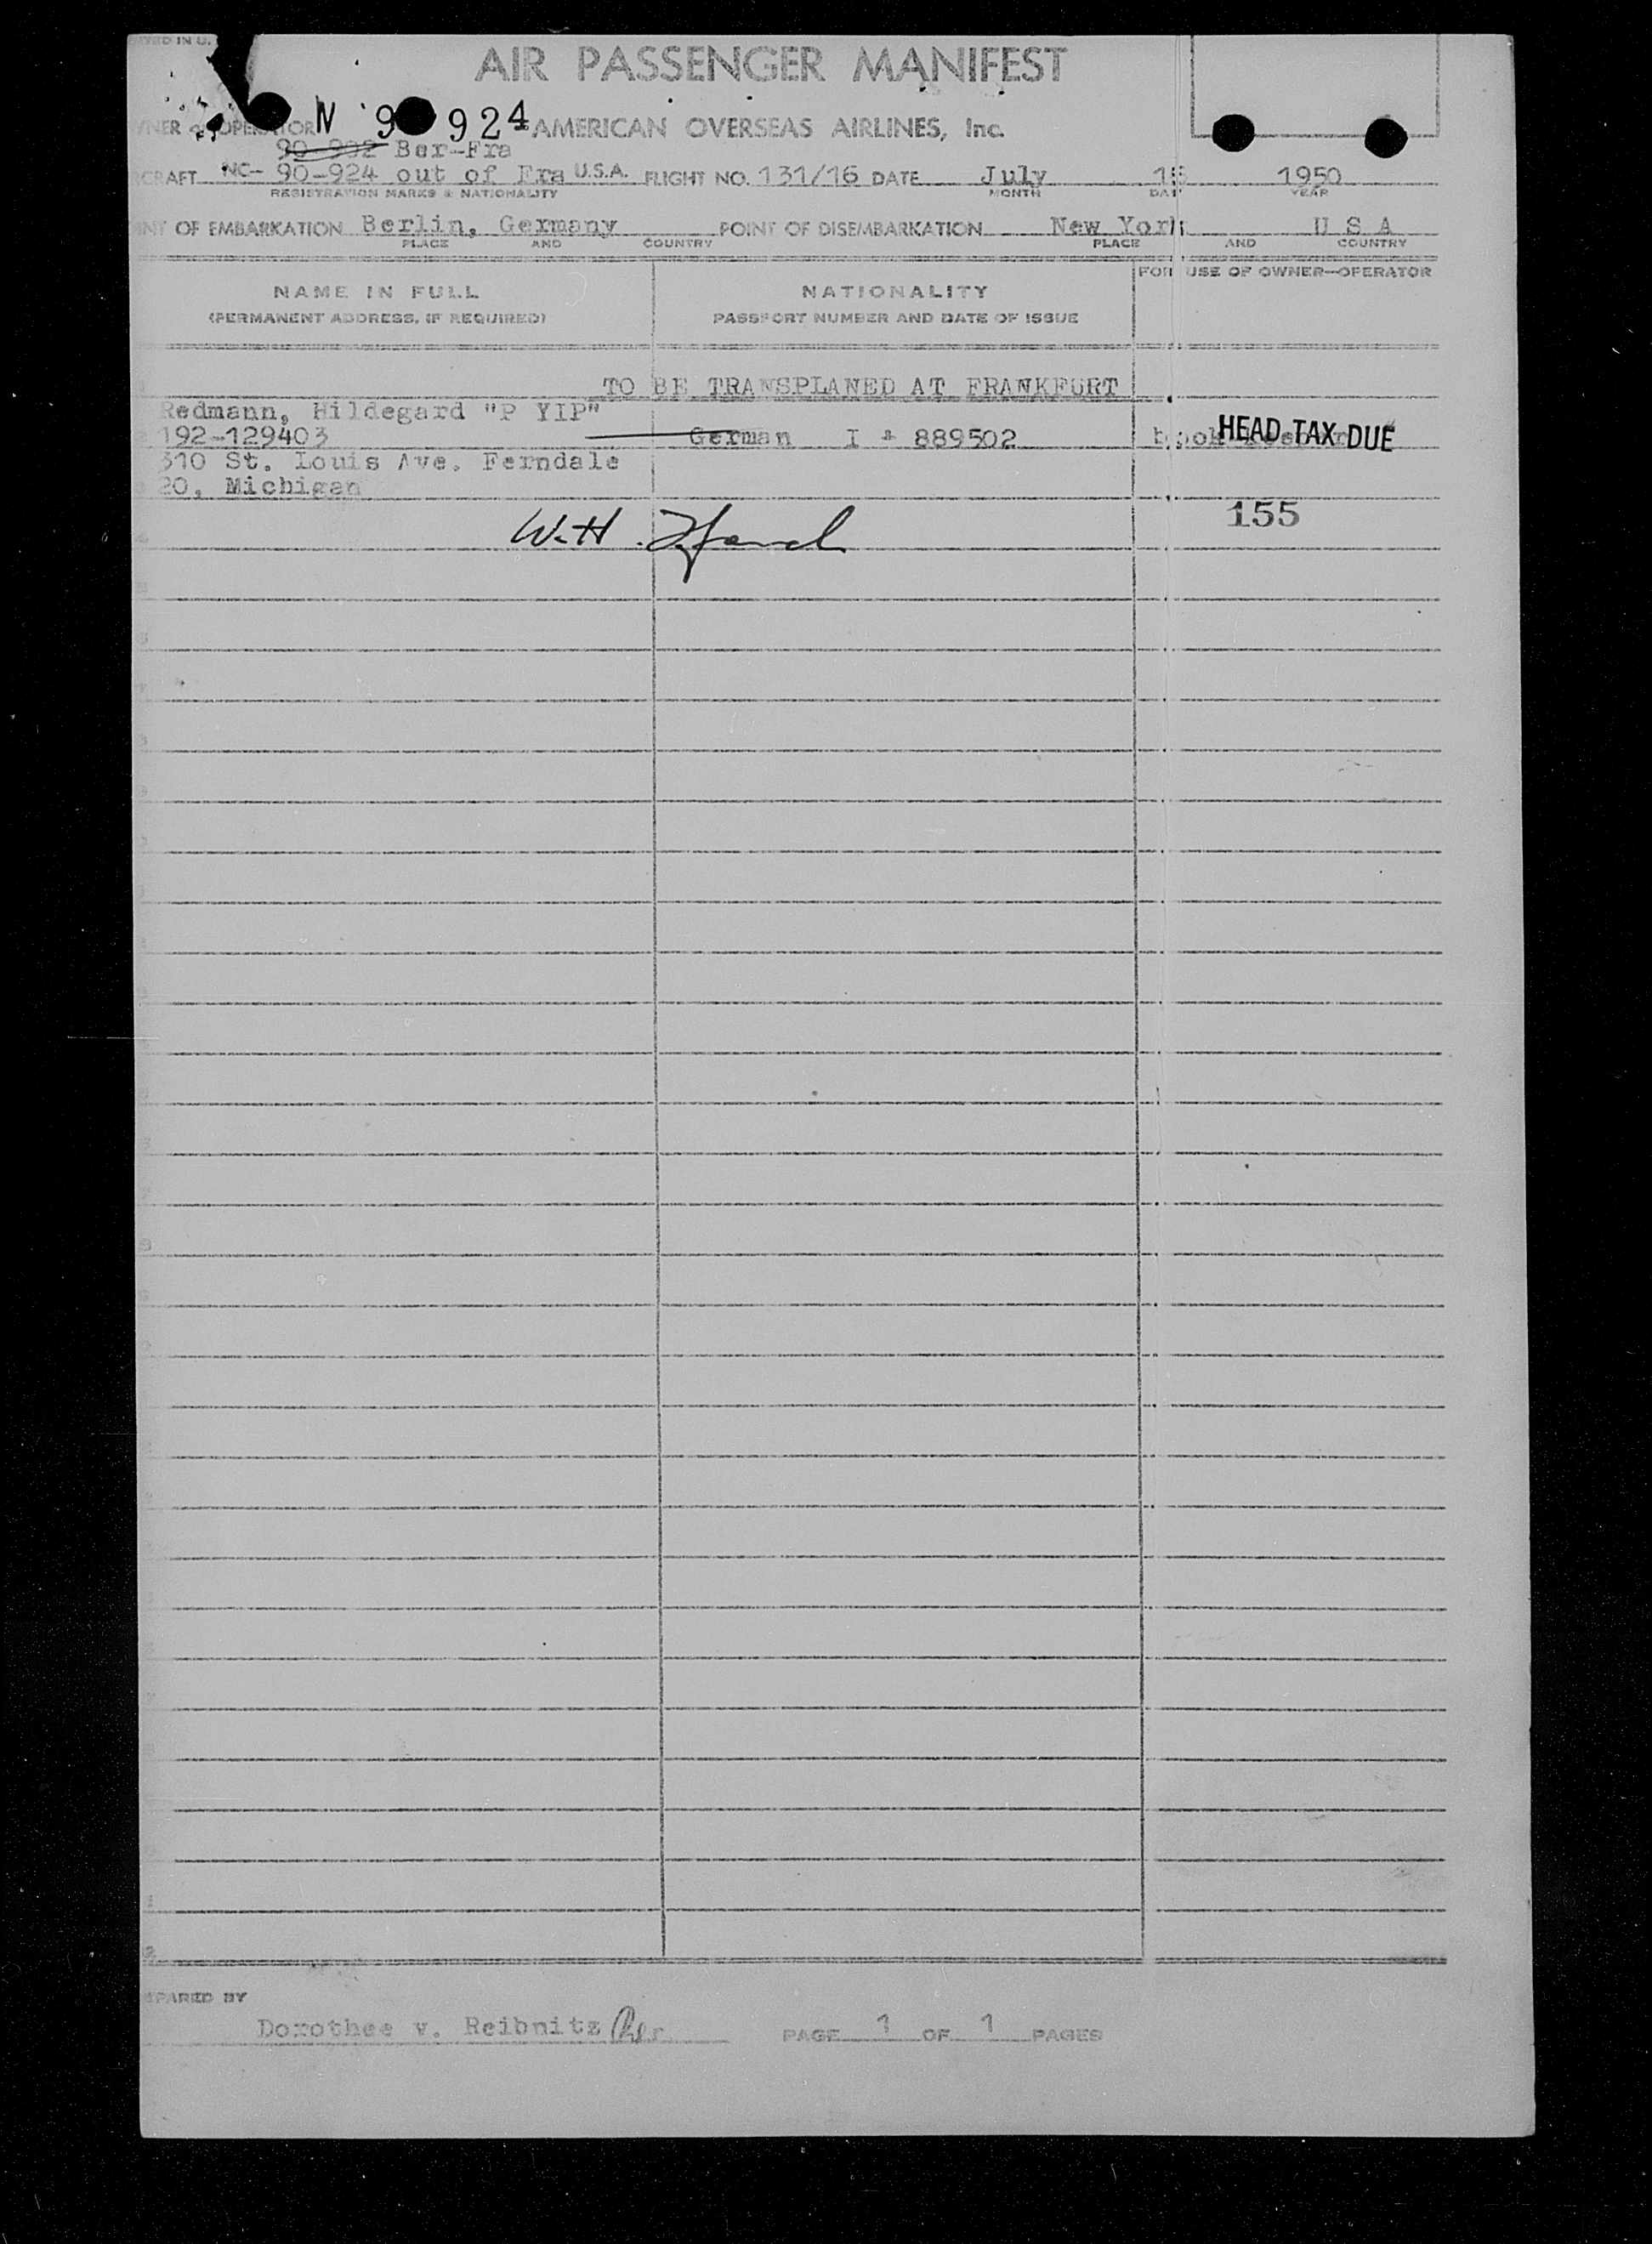 AIR PASSENGER MANIFEST
N 9 924 AMERICAN OVERSEAS AIRLINES, Inc.
90-902 Ber-Fra
NC- 90-924 out of Fra U.S.A. FLIGHT NO. 131/16 DATE July 15 1950
REGISTRATION MARKS & NATIONALITY MONTH DAY YEAR
OF EMBARKATION Berlin, Germany POINT OF DISEMBARKATION New York U S A
PLACE AND COUNTRY PLACE AND COUNTRY
FOR USE OF OWNER-OPERATOR
NAME IN FULL NATIONALITY
(PERMANENT ADDRESS, IF REQUIRED) PASSPORT NUMBER AND DATE OF ISSUE
TO BE TRANSPLANED AT FRANKFURT
Redmann, Hildegard "P YIP"
192-129403 German I 889502 HEAD TAX DUE
310 St. Louis Ave. Ferndale
20, Michigan
155
W.H.
PARED BY
Dorothee v. Reibnitz PAGE 1 OF 1 PAGES